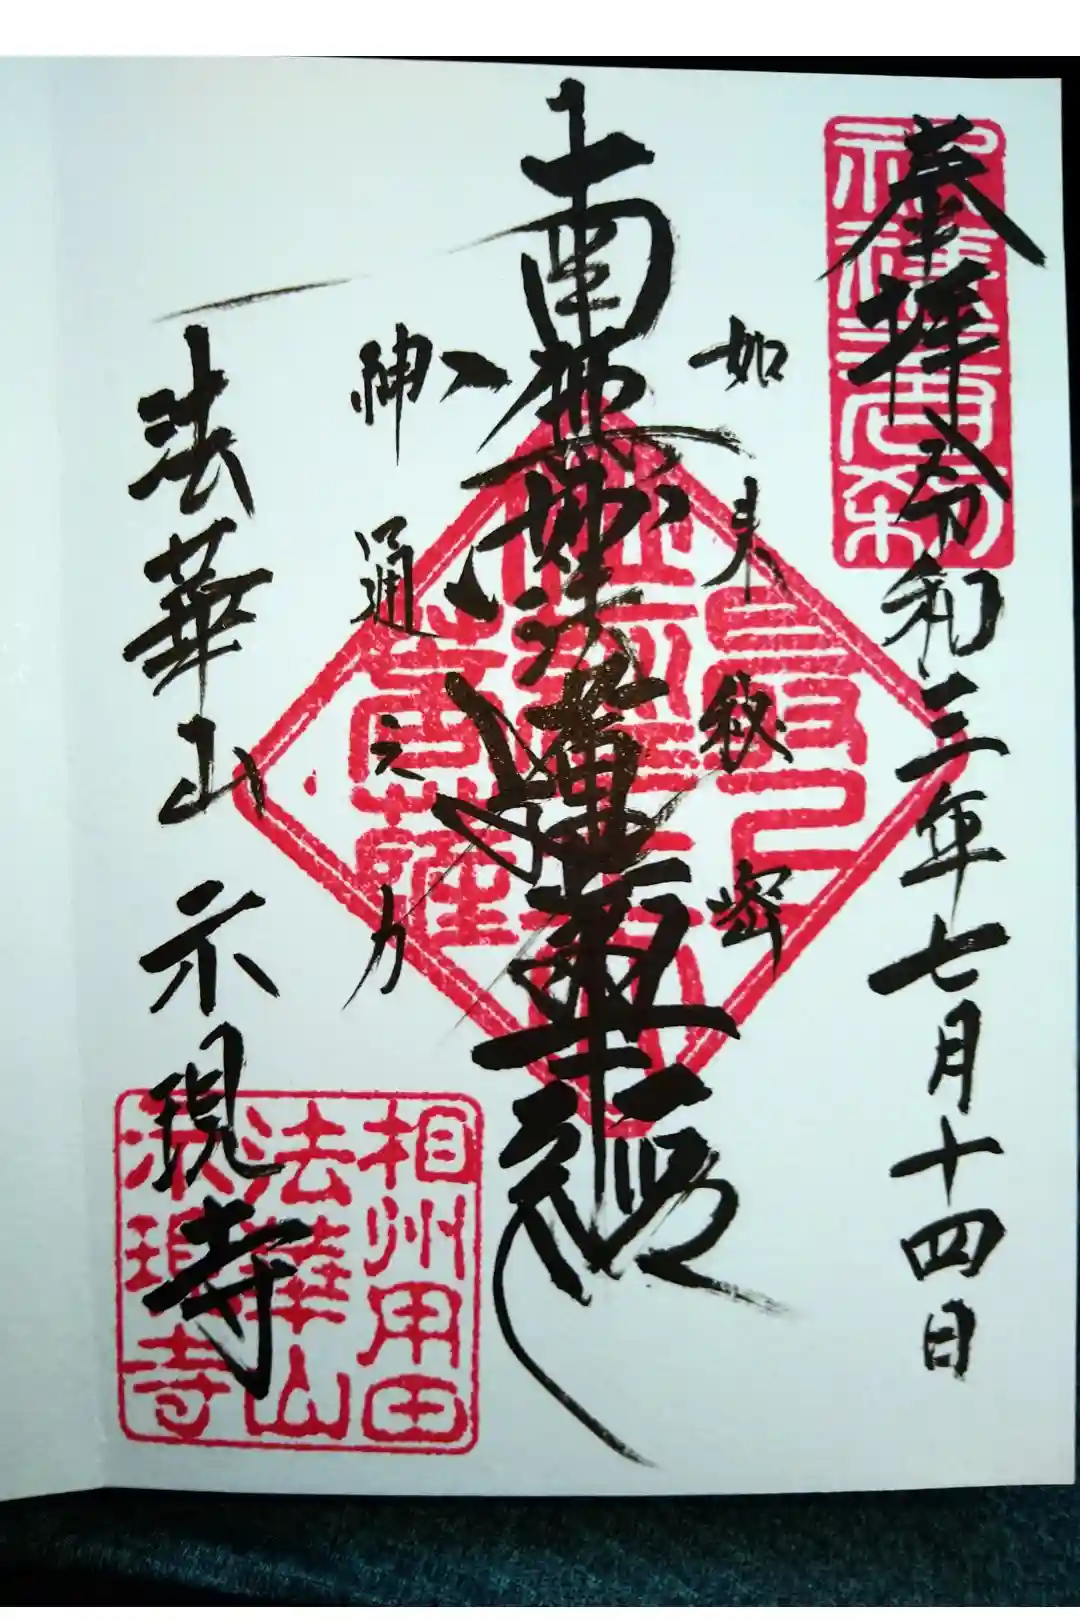 奉拝 令和三年七月十四日
如来秘密
南無妙法蓮華経
神通之力
法華山 示現寺
相州用田
法華山
示現寺